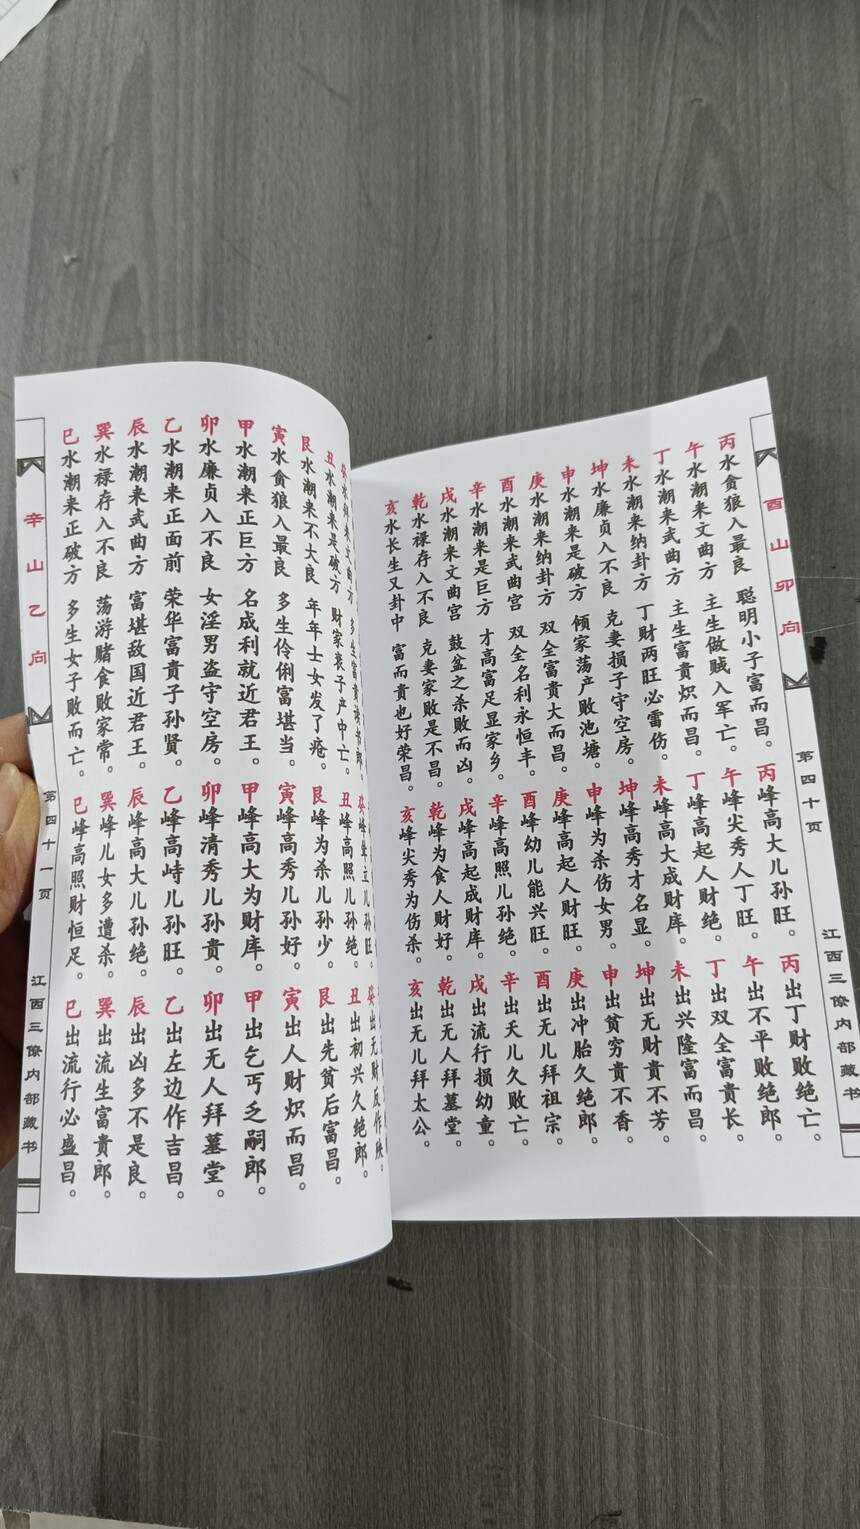 酉山卯向 第四十页 江西三僚内部藏书
丙水贪狼入最良 聪明小子富而昌。丙峰高大儿孙旺。丙出丁财败绝亡。
午水潮来文曲方 主生做贼入军亡。午峰尖秀人丁旺。午出不平败绝郎。
丁水潮来武曲方 主生富貴炽而昌。丁峰高起人财绝。丁出双全富貴长。
未水潮来纳卦方 丁财两旺必雷伤。未峰高大成财库。未出兴隆富而昌。
坤水廉贞入不良 克妻损子守空房。坤峰高秀才名显。坤出无财貴不芳。
申水潮来是破方 倾家荡产败池塘。申峰为杀伤女男。申出贫穷貴不香。
庚水潮来纳卦方 双全富貴大而昌。庚峰高起人财旺。庚出冲胎久绝郎。
酉水潮来武曲宫 双全名利永恒丰。酉峰幼儿能兴旺。酉出无儿拜祖宗。
辛水潮来是巨方 才高富足显家乡。辛峰高照儿孙绝。辛出夭儿久败亡。
戌水潮来文曲宫 鼓盆之杀败而凶。戌峰高起成财库。戌出流行损幼童。
乾水禄存入不良 克妻家败是不昌。乾峰为食人财好。乾出无人拜墓堂。
亥水长生又卦中 富而貴也好荣昌。亥峰尖秀为伤杀。亥出无儿拜太公。
癸水潮来文曲方 多生富貴读书郎。癸峰耸立儿孙旺。癸出无财反作殃。
丑水潮来是破方 财家丧子产中亡。丑峰高照儿孙绝。丑出初兴久绝郎。
艮水潮来不大良 年年士女发了疮。艮峰为杀儿孙少。艮出先贫后富昌。
寅水贪狼入最良 多生伶俐富堪当。寅峰高秀儿孙好。寅出人财炽而昌。
甲水潮来正巨方 名成利就近君王。甲峰高大为财库。甲出乞丐乏嗣郎。
卯水廉贞入不良 女淫男盗守空房。卯峰清秀儿孙貴。卯出无人拜墓堂。
乙水潮来正面前 荣华富貴子孙贤。乙峰高峙儿孙旺。乙出左边作吉昌。
辰水潮来武曲方 富堪敌国近君王。辰峰高大儿孙绝。辰出凶多不是良。
巽水禄存入不良 荡游赌食败家常。巽峰儿女多遭杀。巽出流生富貴郎。
巳水潮来正破方 多生女子败而亡。巳峰高照财恒足。巳出流行必盛昌。
辛山乙向 第四十一页 江西三僚内部藏书